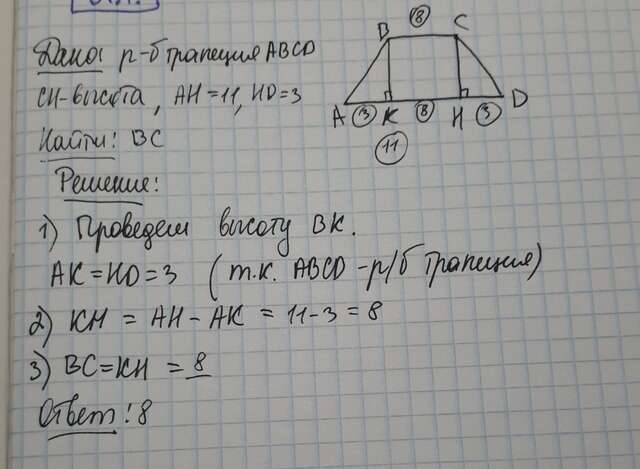 Дано: р-б трапеция ABCD
CH-высота, AH=11, HD=3
Найти: BC
Решение:
1) Проведем высоту BK.
AK=HD=3 (т.к. ABCD-р/б трапеция)
2) KH = AH-AK = 11-3=8
3) BC=KH = 8
Ответ: 8
B 8 C
A 3 K 8 H 3 D
11